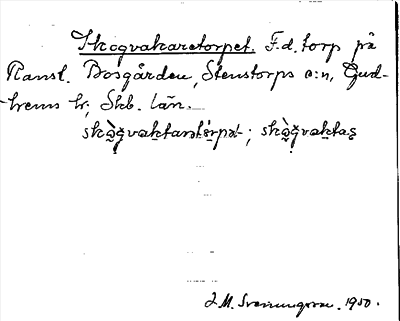 Skogvakaretorpet. F.d. torp på
Ranst. Bosgården, Stenstorps s:n, Gud-
hems hd, Skb. län.
skò̱ǧvaktarətò̱rpət; skò̱ǧvaktas̱
J.M. 1950.